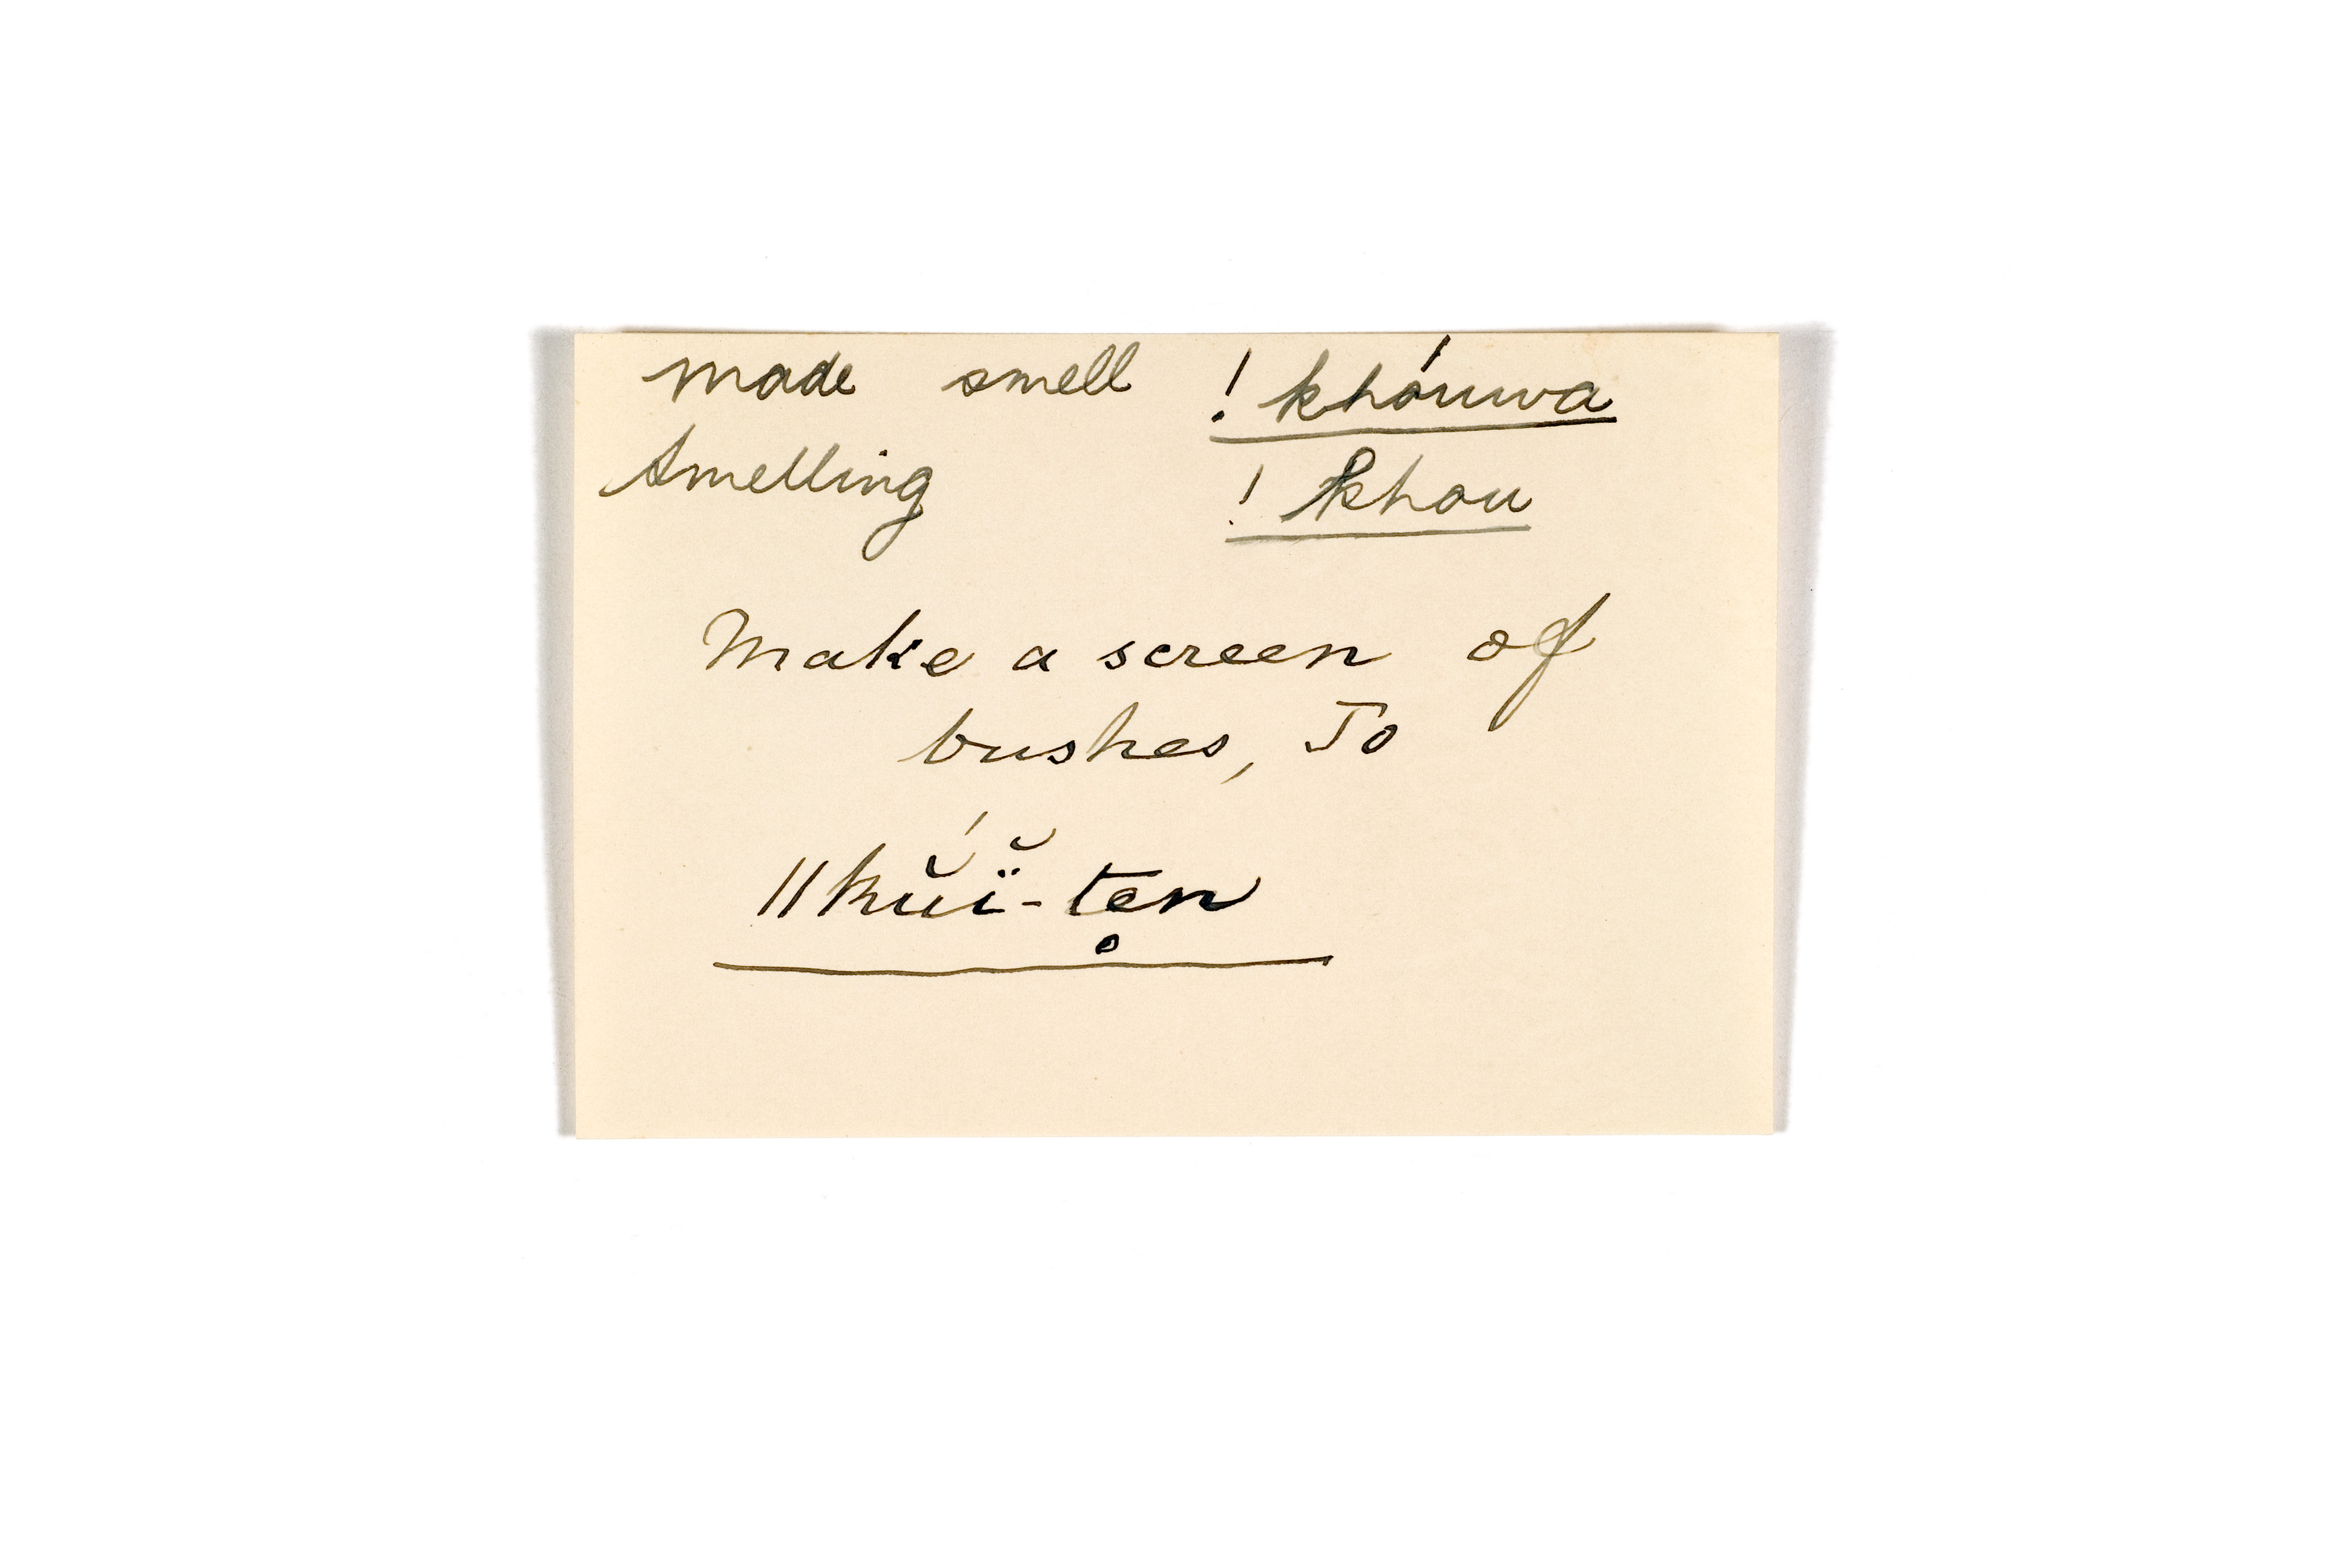 made smell !khóuwa
smelling !khou
Make a screen of
bushes, To
ǁkŭ́ĭ̈-ten̥